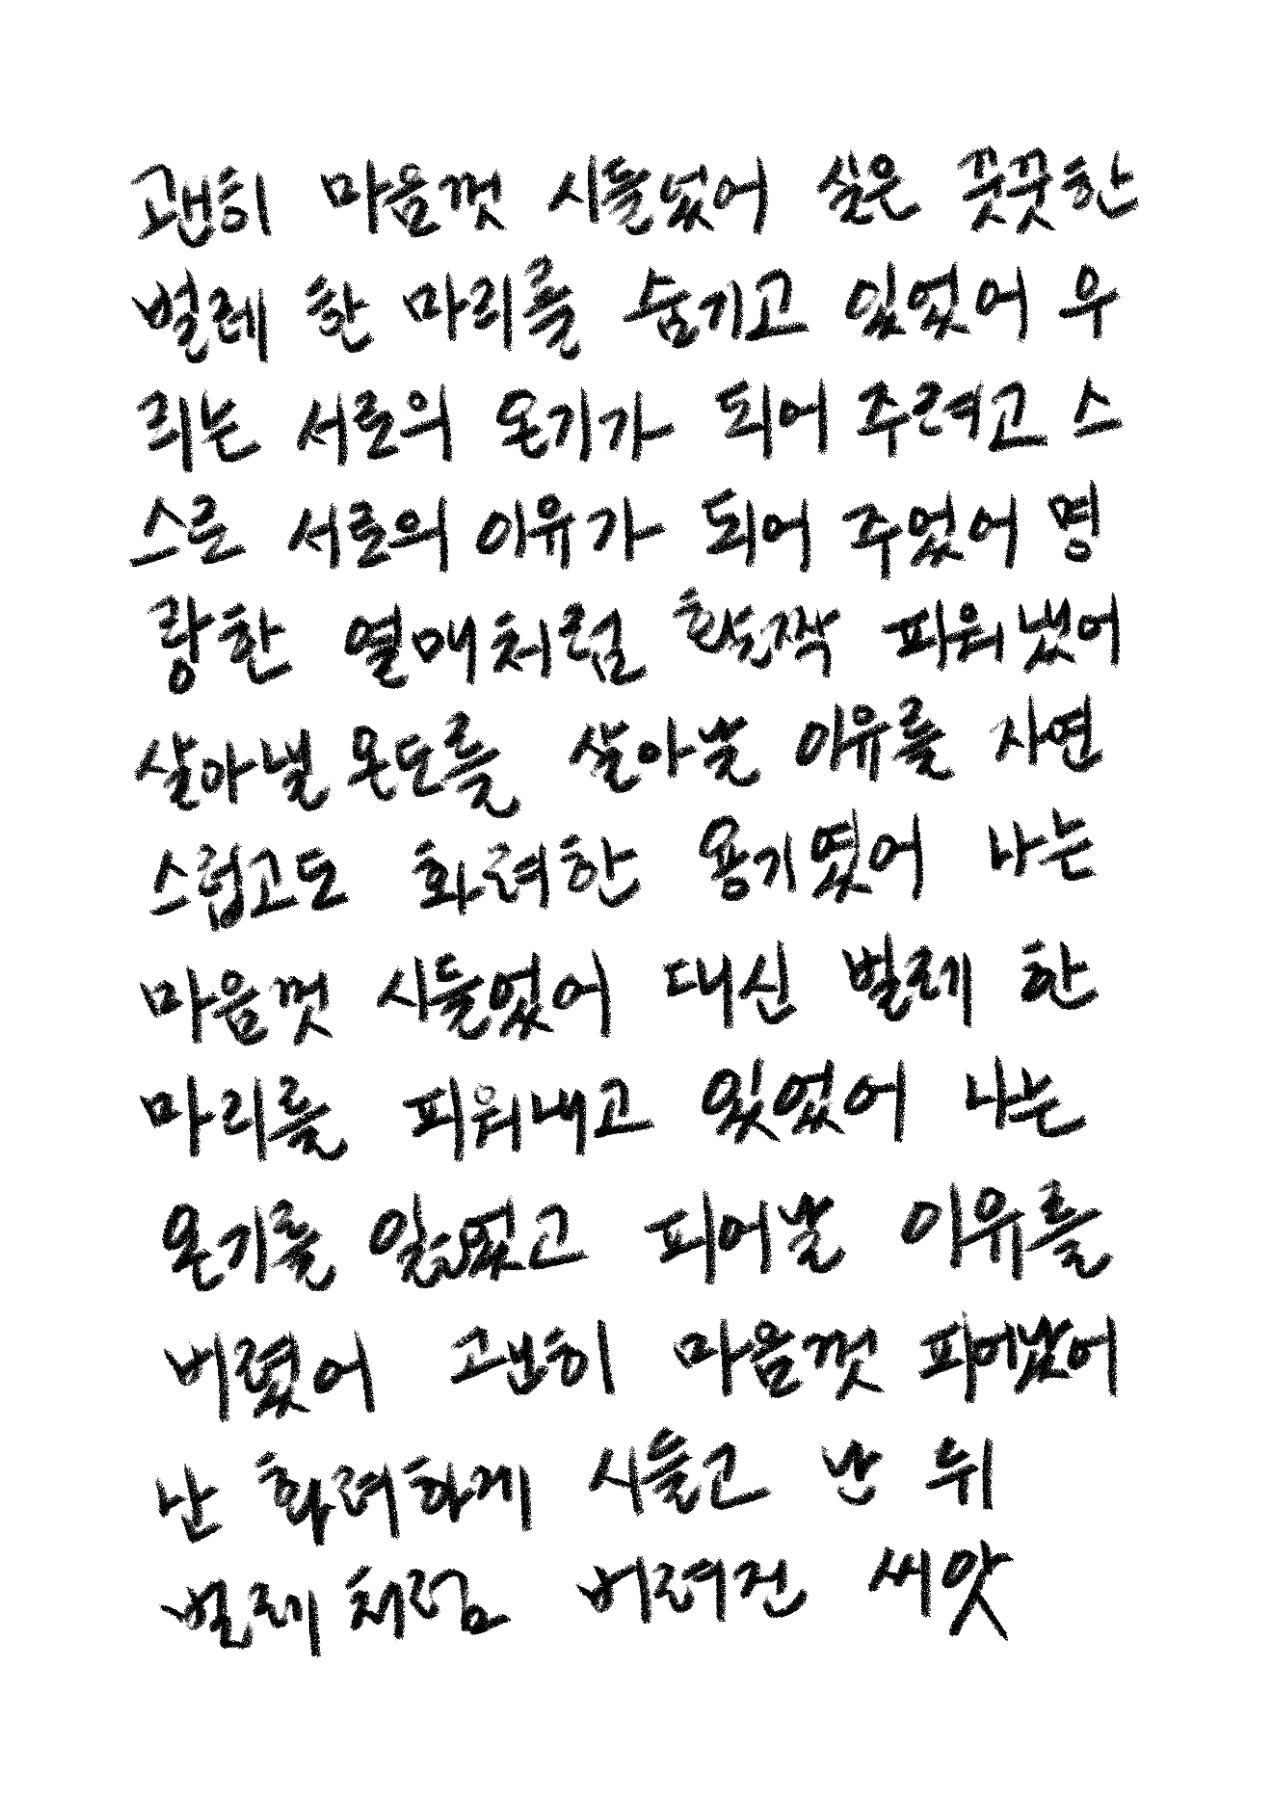 괜히 마음껏 시들었어 실은 꿋꿋한
벌레 한 마리를 숨기고 있었어 우
리는 서로의 온기가 되어 주려고 스
스로 서로의 이유가 되어 주었어 명
랑한 열매처럼 활짝 피워냈어
살아낼 온도를 살아날 이유를 자연
스럽고도 화려한 용기였어 나는
마음껏 시들었어 대신 벌레 한
마리를 피워내고 있었어 나는
온기를 잃었고 피어날 이유를
버렸어 괜히 마음껏 피어났어
난 화려하게 시들고 난 뒤
벌레처럼 버려진 씨앗